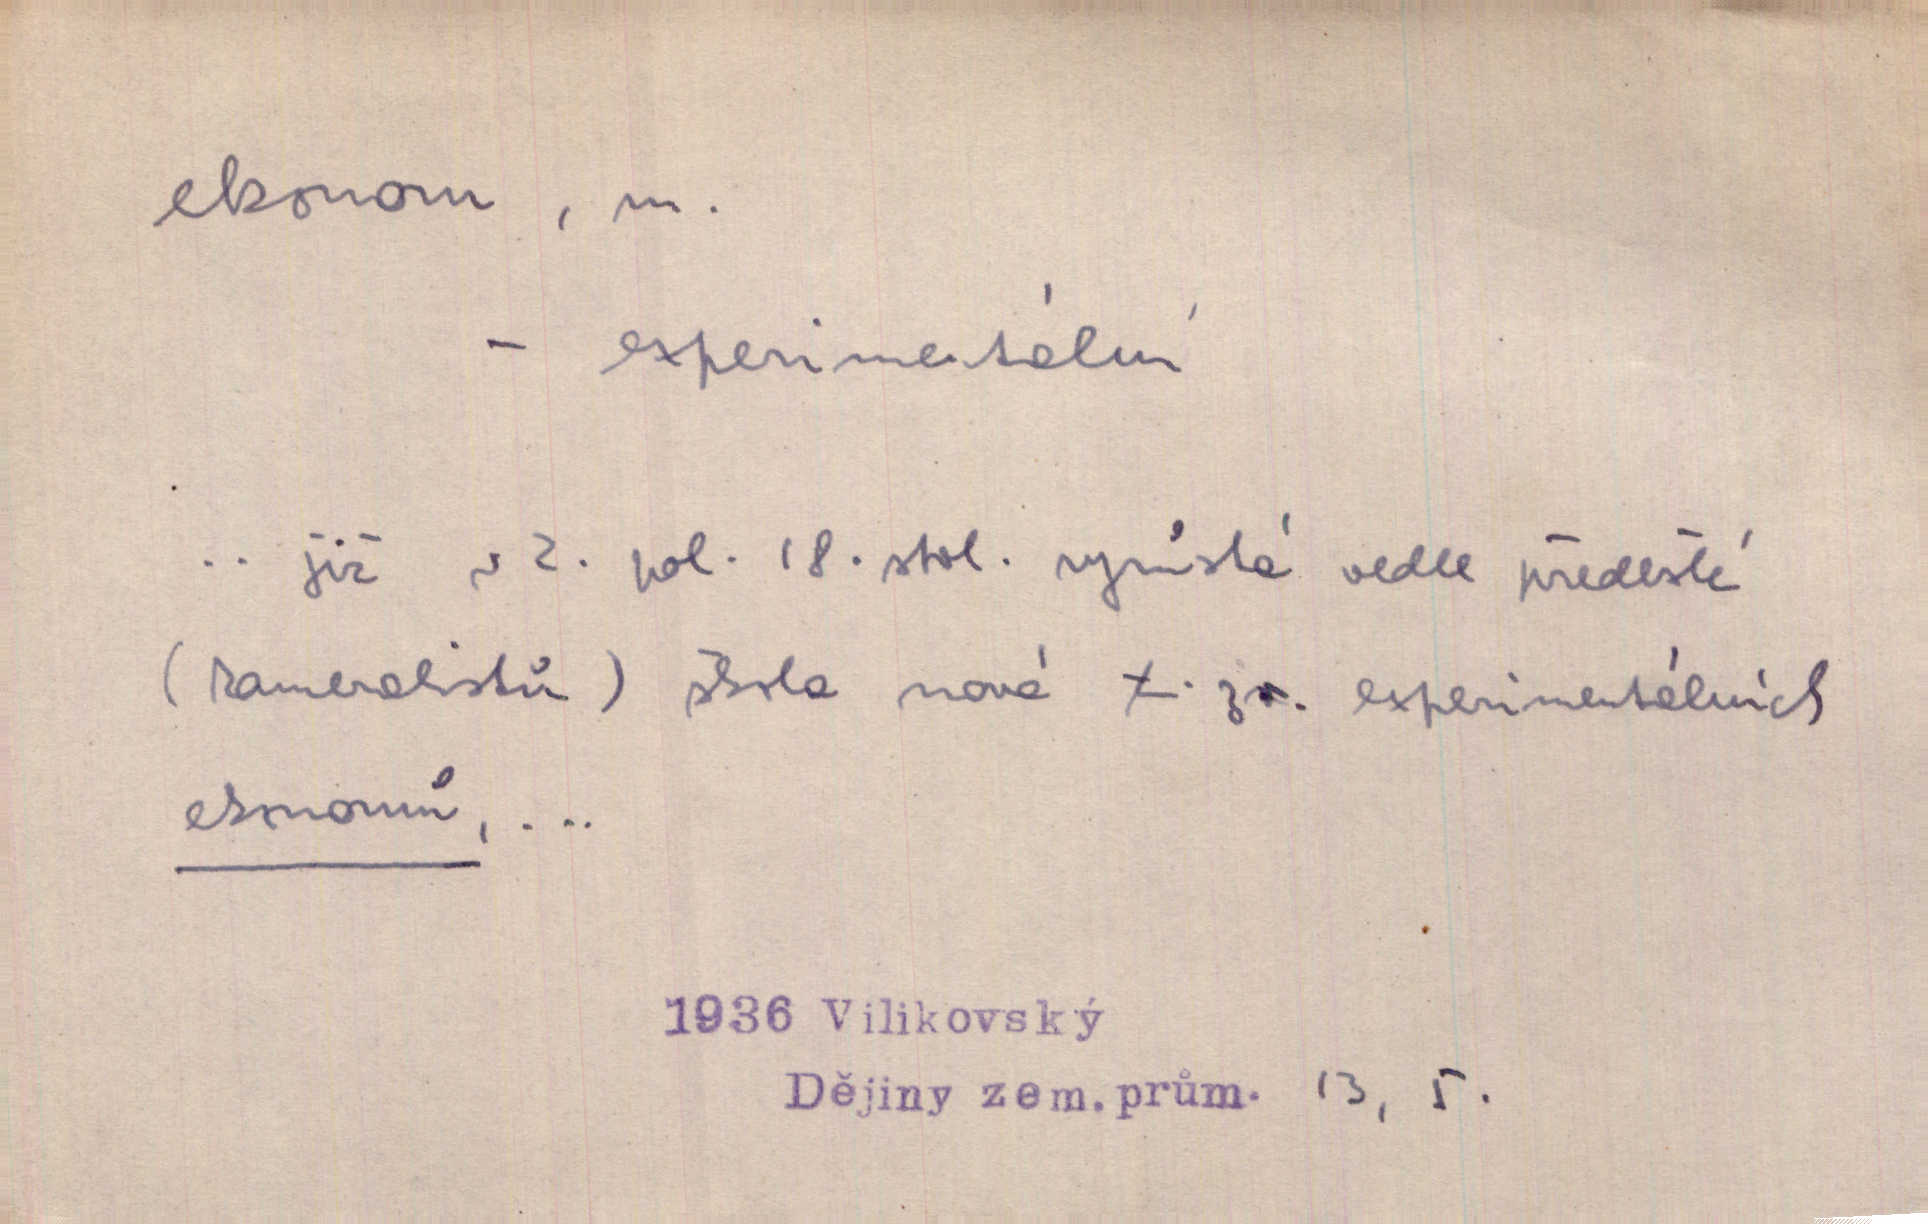 ekonom, m.
- experimentální
.. již v 2. pol. 18. stol. vyrůstá vedle předešlé
(kameralistů) škola nová t. zv. experimentálních
ekonomů, ...
1936 Vilikovský
Dějiny zem. prům. 13, 5.